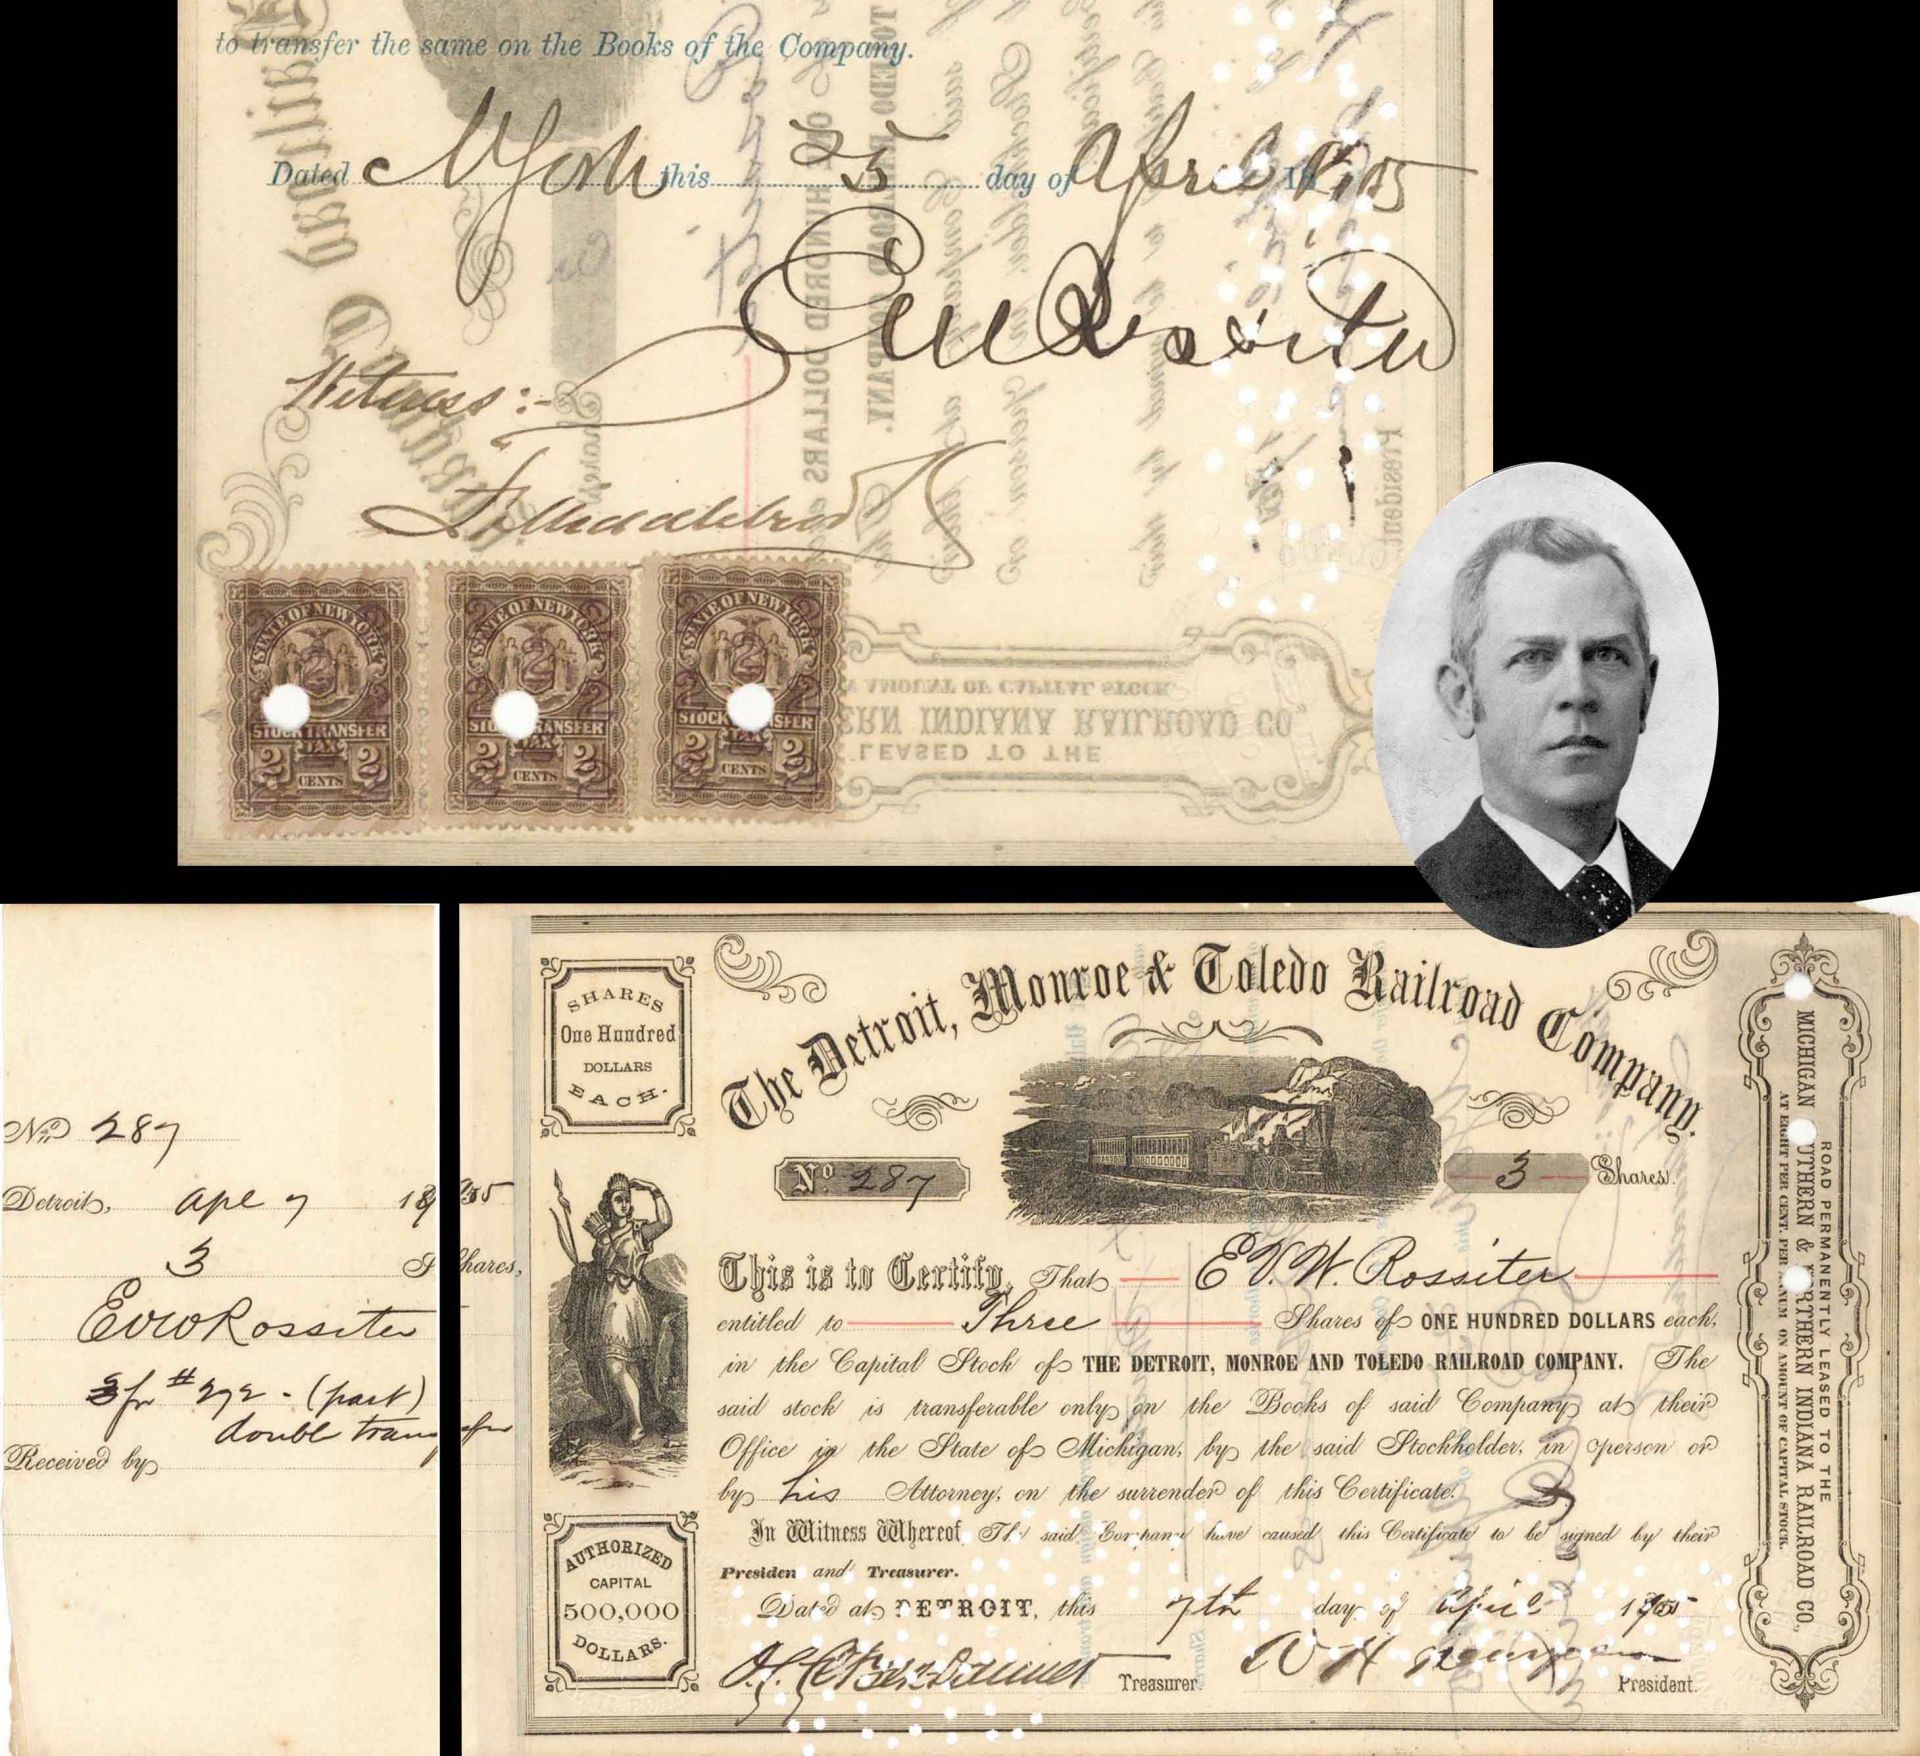 to transfer the same on the Books of the Company.
Dated N York this 25 day of April 1905
E V W Rossiter
Witness:-
STATE OF NEW YORK
2
STOCK TRANSFER
TAX
2 CENTS 2
STATE OF NEW YORK
2
STOCK TRANSFER
TAX
2 CENTS 2
STATE OF NEW YORK
2
STOCK TRANSFER
TAX
2 CENTS 2
No 287
Detroit, Apl 7 1905
3 Shares,
EVW Rossiter
3 fr # 272 - (part)
double transfer
Received by
SHARES
One Hundred
DOLLARS
EACH.
The Detroit, Monroe & Toledo Railroad Company.
No 287
3 Shares.
This is to Certify, That E. V. W. Rossiter
entitled to Three Shares of ONE HUNDRED DOLLARS each,
in the Capital Stock of THE DETROIT, MONROE AND TOLEDO RAILROAD COMPANY. The
said stock is transferable only on the Books of said Company at their
Office in the State of Michigan, by the said Stockholder, in person or
by his Attorney, on the surrender of this Certificate.
In Witness Whereof The said Company have caused this Certificate to be signed by their
President and Treasurer.
Dated at DETROIT, this 7th day of April 1905
Treasurer.
President.
AUTHORIZED
CAPITAL
500,000
DOLLARS.
ROAD PERMANENTLY LEASED TO THE
MICHIGAN SOUTHERN & NORTHERN INDIANA RAILROAD CO.,
AT EIGHT PER CENT. PER ANNUM ON AMOUNT OF CAPITAL STOCK.